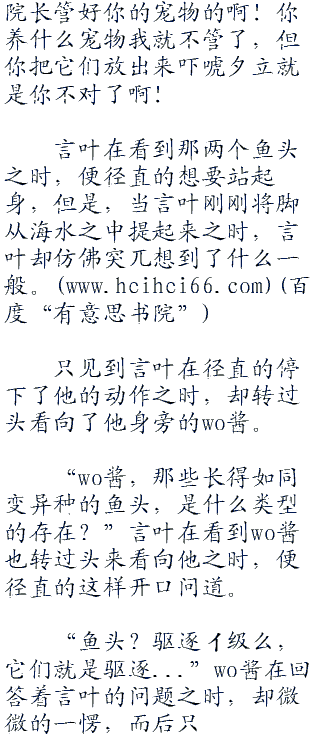 院长管好你的宠物的啊！你
养什么宠物我就不管了，但
你把它们放出来吓唬夕立就
是你不对了啊！
言叶在看到那两个鱼头
之时，便径直的想要站起
身，但是，当言叶刚刚将脚
从海水之中提起来之时，言
叶却仿佛突兀想到了什么一
般。(www.hcihci66.com)(百
度“有意思书院”)
只见到言叶在径直的停
下了他的动作之时，却转过
头看向了他身旁的wo酱。
“wo酱，那些长得如同
变异种的鱼头，是什么类型
的存在？”言叶在看到wo酱
也转过头来看向他之时，便
径直的这样开口问道。
“鱼头？驱逐イ级么，
它们就是驱逐...”wo酱在回
答着言叶的问题之时，却微
微的一愣，而后只